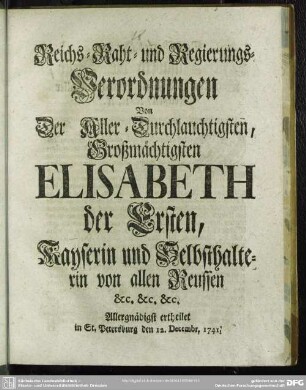 Reichs-Raht- und Regierungs-
Verordnungen
Von
Der Aller-Durchlauchtigsten,
Großmächtigsten
ELISABETH
der Ersten,
Kayserin und Selbsthalte-
rin von allen Reussen
&c. &c. &c.
Allergnädigst ertheilet
in St. Petersburg den 12. Decembr, 1741.